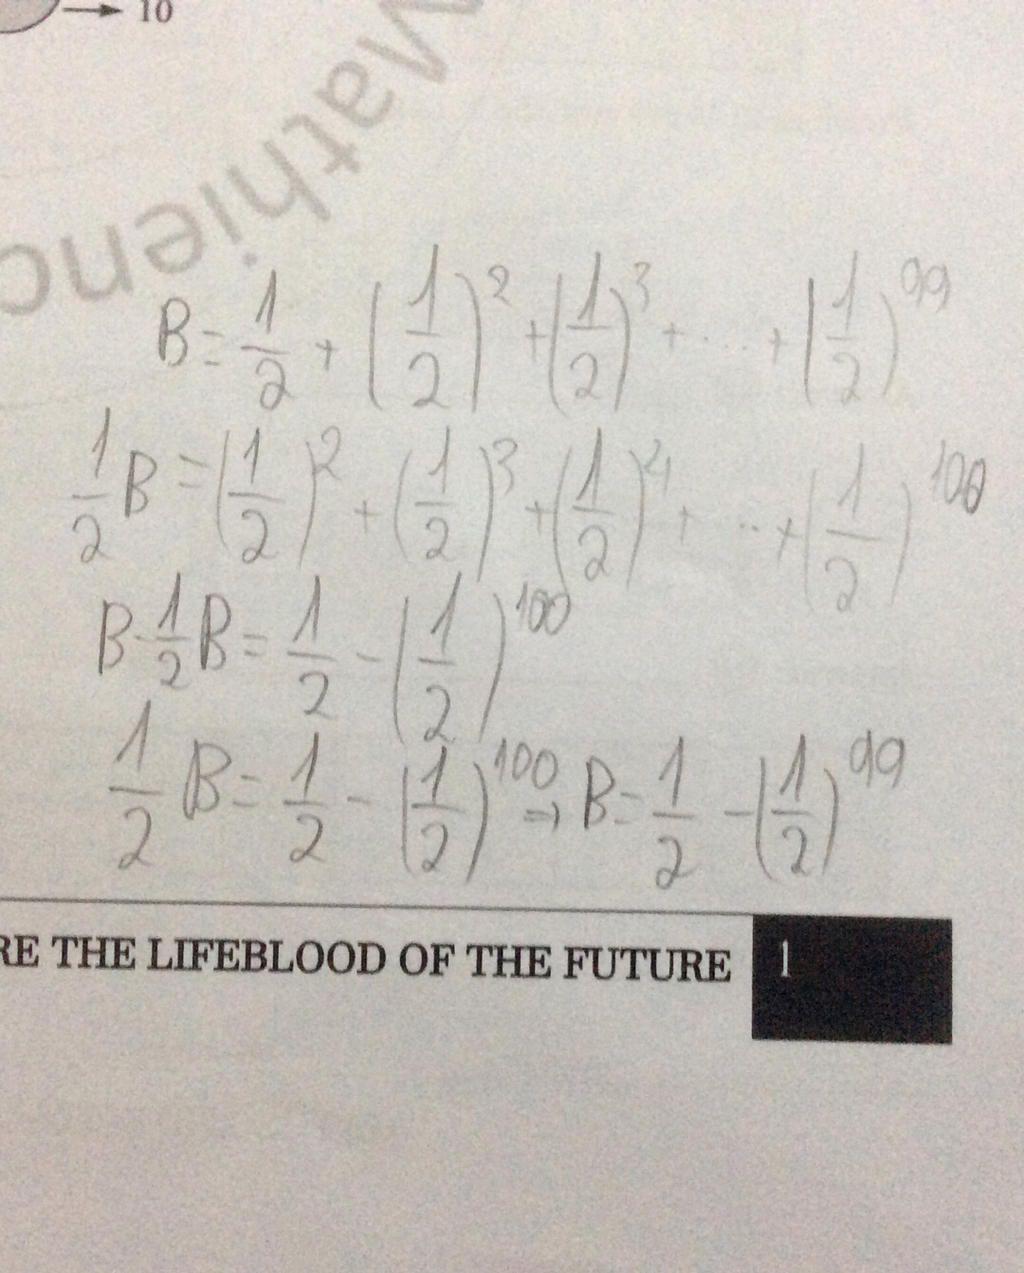 → 10
Mathienc
B = 1/2 + (1/2)^2 + (1/2)^3 + ... + (1/2)^99
1/2 B = (1/2)^2 + (1/2)^3 + (1/2)^4 + ... + (1/2)^100
B - 1/2 B = 1/2 - (1/2)^100
1/2 B = 1/2 - (1/2)^100 ⇒ B = 1/2 - (1/2)^99
RE THE LIFEBLOOD OF THE FUTURE 1